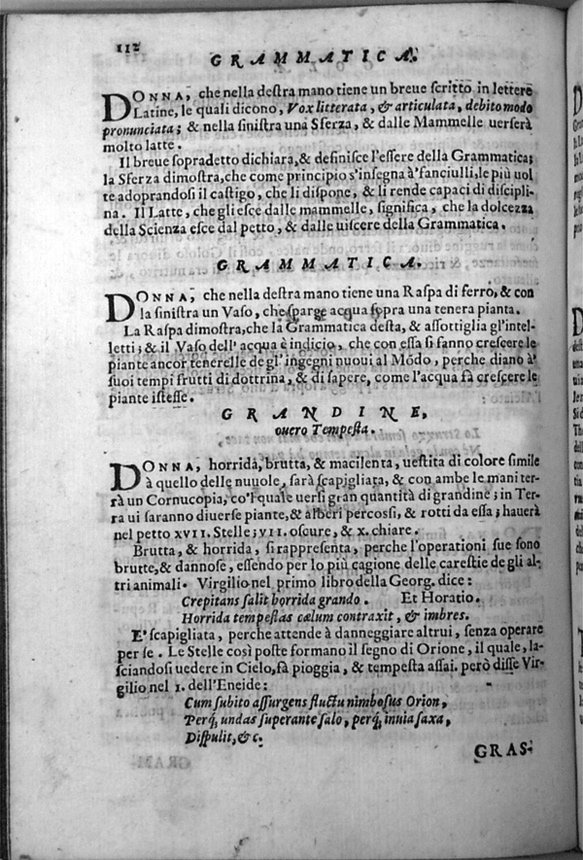 112
GRAMMATICA.
DONNA, che nella deſtra mano tiene un breue ſcritto in lettere
Latine, le quali dicono, Vox litterata, & articulata, debito modo
pronunciata; & nella ſiniſtra una Sferza, & dalle Mammelle uerſerà
molto latte.
Il breue ſopradetto dichiara, & definiſce l'eſſere della Grammatica;
la Sferza dimoſtra, che come principio s'inſegna à'fanciulli, le più uol
te adoprandoſi il caſtigo, che li diſpone, & li rende capaci di diſcipli-
na. Il Latte, che gli eſce dalle mammelle, ſignifica, che la dolcezza
della Scienza eſce dal petto, & dalle uiſcere della Grammatica.
GRAMMATICA.
DONNA, che nella deſtra mano tiene una Raſpa di ferro, & con
la ſiniſtra un Vaſo, che ſparge acqua ſopra una tenera pianta.
La Raſpa dimoſtra, che la Grammatica deſta, & aſſottiglia gl'intel-
letti; & il Vaſo dell' acqua è indicio, che con eſſa ſi fanno creſcere le
piante ancor tenerelle de gl' ingegni nuoui al Módo, perche diano à'
ſuoi tempi frutti di dottrina, & di ſapere, come l'acqua fà creſcere le
piante iſteſſe.
GRANDINE,
ouero Tempeſta.
DONNA, horrida, brutta, & macilenta, ueſtita di colore ſimile
à quello delle nuuole, ſarà ſcapigliata, & con ambe le mani ter-
rà un Cornucopia, co'l quale uerſi gran quantità di grandine; in Ter-
ra ui ſaranno diuerſe piante, & alberi percoſſi, & rotti da eſſa; hauerà
nel petto XVII. Stelle; VII. oſcure, & X. chiare.
Brutta, & horrida, ſi rappreſenta, perche l'operationi ſue ſono
brutte, & dannoſe, eſſendo per lo più cagione delle careſtie de gli al-
tri animali. Virgilio nel primo libro della Georg. dice:
Crepitans ſalit horrida grando. Et Horatio.
Horrida tempeſtas cælum contraxit, & imbres.
E' ſcapigliata, perche attende à danneggiare altrui, ſenza operare
per ſe. Le Stelle così poſte formano il ſegno di Orione, il quale, la-
ſciandoſi uedere in Cielo, fà pioggia, & tempeſta aſſai. però diſſe Vir-
gilio nel 1. dell'Eneide:
Cum ſubito aſſurgens fluctu nimboſus Orion,
Perq́; undas ſuperante ſalo, perq́; inuia ſaxa,
Diſpulit, & c.
GRAS-